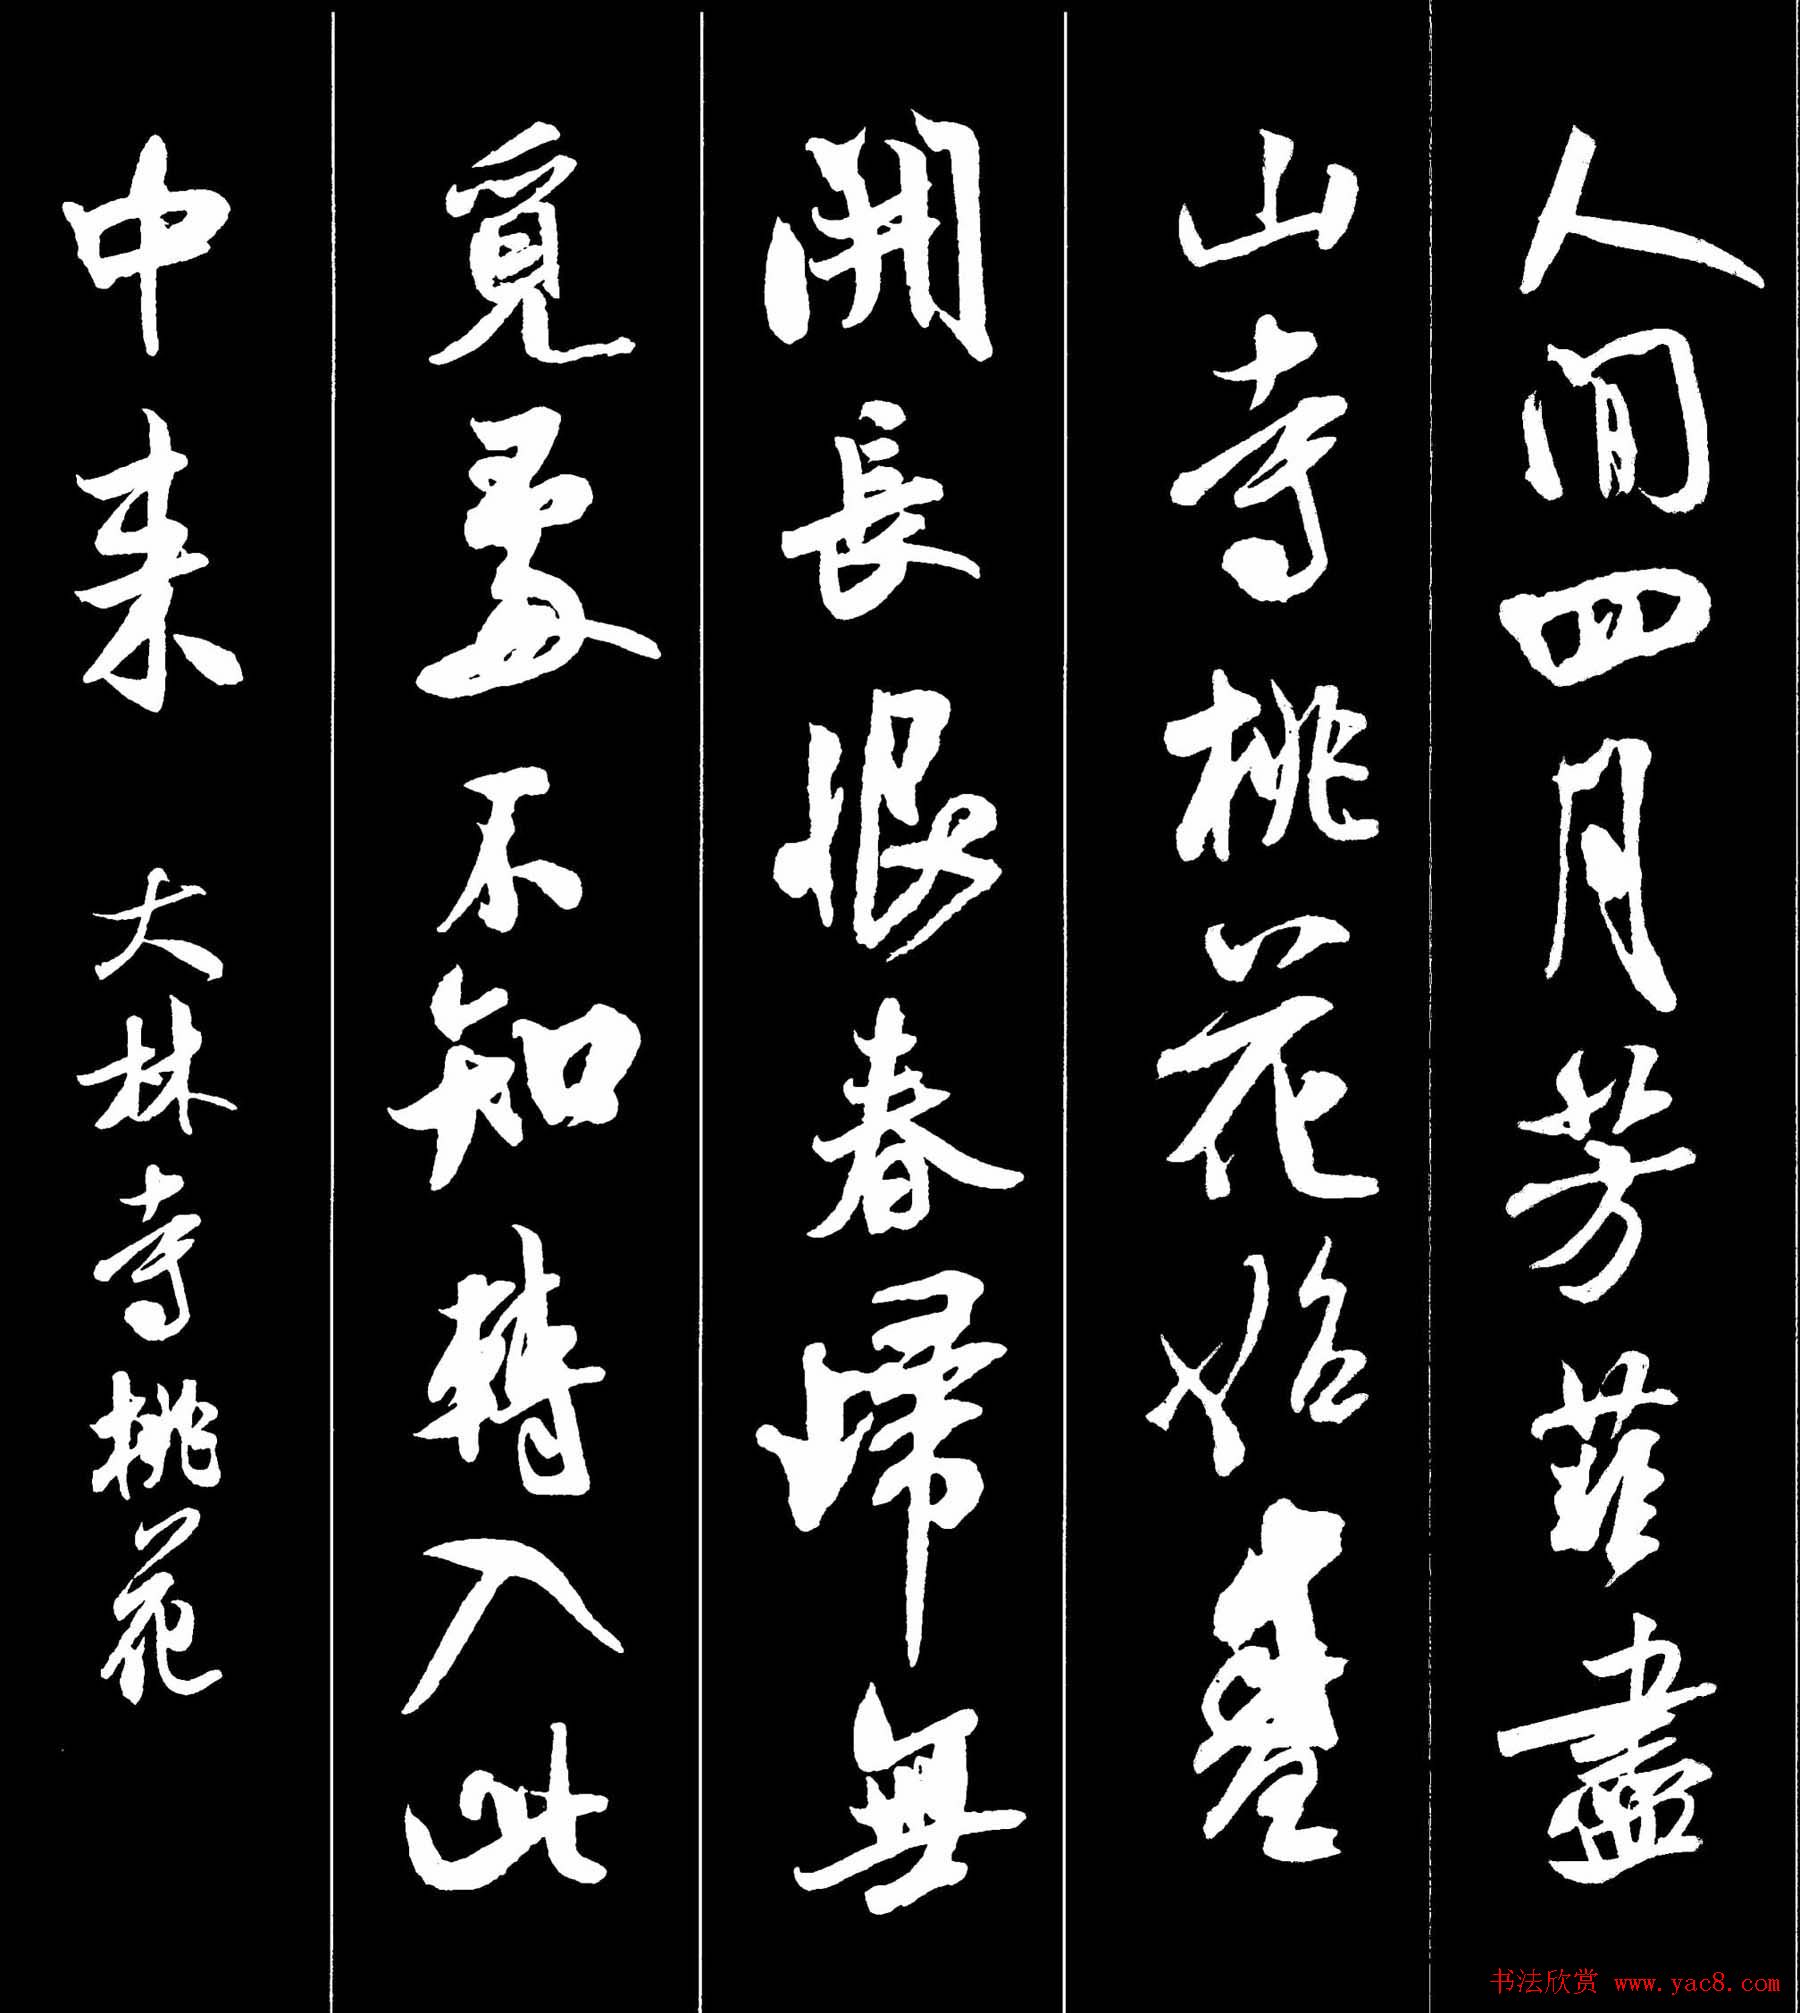 人間四月芳菲盡
山寺桃花始盛
開長恨春歸無
覓處不知轉入此
中來 大林寺桃花
书法欣赏 www.yac8.com